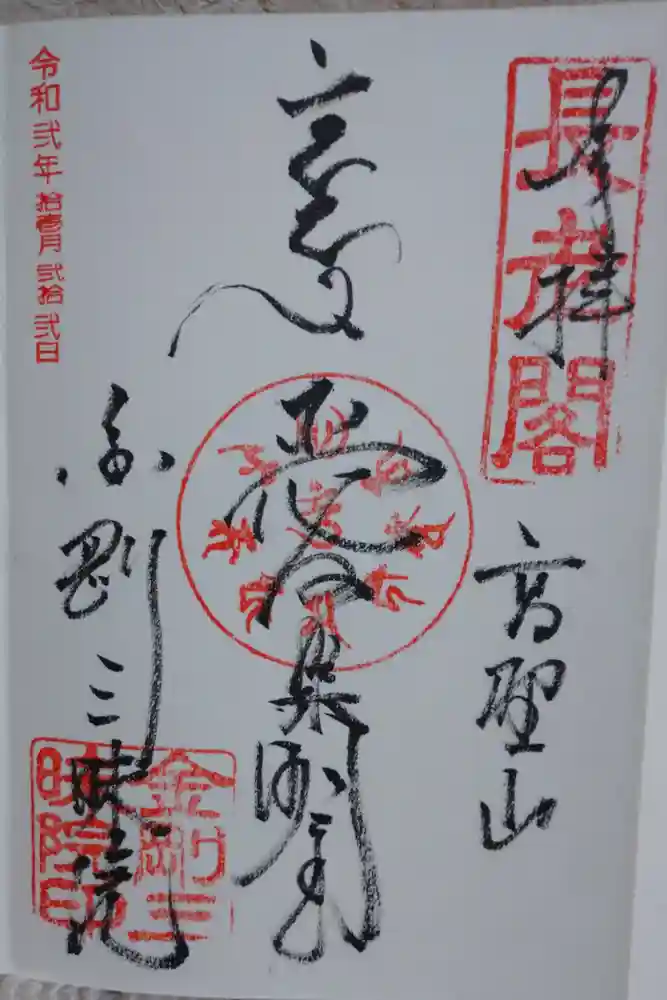 奉拝
長老閣
高野山
愛染明王
金剛三昧院
金剛三
昧院印
令和弐年拾壱月弐拾弐日